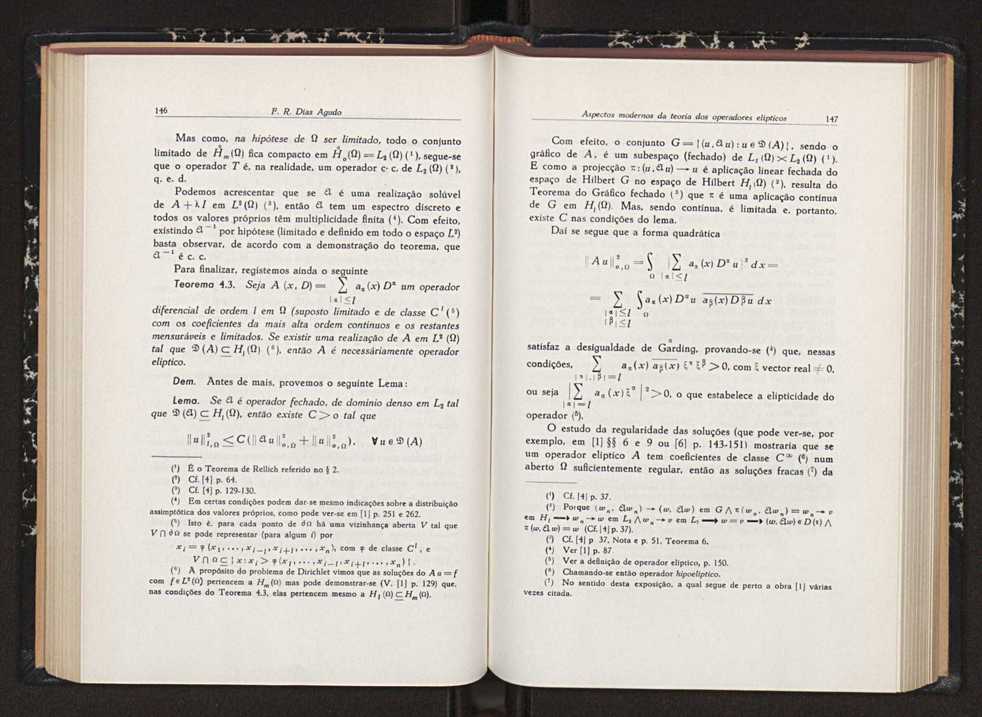 146
F. R. Dias Agudo
Mas como, na hipótese de Ω ser limitado, todo o conjunto
limitado de H̊ₘ(Ω) fica compacto em H̊ₒ(Ω) = L₂(Ω) (¹), segue-se
que o operador T é, na realidade, um operador c· c. de L₂(Ω) (²),
q. e. d.
Podemos acrescentar que se 𝒜 é uma realização solúvel
de A + λI em L²(Ω) (³), então 𝒜 tem um espectro discreto e
todos os valores próprios têm multiplicidade finita (⁴). Com efeito,
existindo 𝒜⁻¹ por hipótese (limitado e definido em todo o espaço L²)
basta observar, de acordo com a demonstração do teorema, que
𝒜⁻¹ é c. c.
Para finalizar, registemos ainda o seguinte
Teorema 4.3. Seja A (x, D) = ∑ aα(x) Dα um operador
|α| ≤ l
diferencial de ordem l em Ω (suposto limitado e de classe Cˡ (⁵)
com os coeficientes da mais alta ordem contínuos e os restantes
mensuráveis e limitados. Se existir uma realização de A em L²(Ω)
tal que 𝒟(A) ⊆ Hₗ(Ω) (⁶), então A é necessàriamente operador
elíptico.
Dem. Antes de mais, provemos o seguinte Lema:
Lema. Se 𝒜 é operador fechado, de domínio denso em L₂ tal
que 𝒟(𝒜) ⊆ Hₗ(Ω), então existe C > o tal que
‖u‖²ₗ,Ω ≤ C(‖𝒜u‖²ₒ,Ω + ‖u‖²ₒ,Ω), ∀ u ∈ 𝒟(A)
(¹) É o Teorema de Rellich referido no § 2.
(²) Cf. [4] p. 64.
(³) Cf. [4] p. 129-130.
(⁴) Em certas condições podem dar-se mesmo indicações sobre a distribuição
assimptótica dos valores próprios, como pode ver-se em [1] p. 251 e 262.
(⁵) Isto é, para cada ponto de ∂Ω há uma vizinhança aberta V tal que
V ∩ ∂Ω se pode representar (para algum i) por
xᵢ = φ(x₁, . . . , xᵢ₋₁, xᵢ₊₁, . . . , xₙ), com φ de classe Cˡ, e
V ∩ Ω ⊆ {x : xᵢ > φ(x₁, . . . , xᵢ₋₁, xᵢ₊₁, . . . , xₙ)}.
(⁶) A propósito do problema de Dirichlet vimos que as soluções do Au = f
com f ∈ L²(Ω) pertencem a Hₘ(Ω) mas pode demonstrar-se (V. [1] p. 129) que,
nas condições do Teorema 4.3, elas pertencem mesmo a Hₗ(Ω) ⊆ Hₘ(Ω).
Aspectos modernos da teoria dos operadores elípticos
147
Com efeito, o conjunto G = {(u, 𝒜u) : u ∈ 𝒟(A)}, sendo o
gráfico de A, é um subespaço (fechado) de L₁(Ω) × L₂(Ω) (¹).
E como a projecção π : (u, 𝒜u) → u é aplicação linear fechada do
espaço de Hilbert G no espaço de Hilbert Hₗ(Ω) (²), resulta do
Teorema do Gráfico fechado (³) que π é uma aplicação contínua
de G em Hₗ(Ω). Mas, sendo contínua, é limitada e, portanto,
existe C nas condições do lema.
Daí se segue que a forma quadrática
‖Au‖²ₒ,Ω = ∫Ω |∑|α|≤l aα(x) Dα u|² dx =
= ∑|α|≤l |β|≤l ∫Ω aα(x) Dα u a̅β̅(̅x̅)̅ D̅β̅u̅ dx
satisfaz a desigualdade de Gårding, provando-se (⁴) que, nessas
condições, ∑|α|,|β|=l aα(x) a̅β̅(̅x̅)̅ ξα ξβ > 0, com ξ vector real ≠ 0,
ou seja |∑|α|=l aα(x) ξα|² > 0, o que estabelece a elipticidade do
operador (⁵).
O estudo da regularidade das soluções (que pode ver-se, por
exemplo, em [1] §§ 6 e 9 ou [6] p. 143-151) mostraria que se
um operador elíptico A tem coeficientes de classe C∞ (⁶) num
aberto Ω suficientemente regular, então as soluções fracas (⁷) da
(¹) Cf. [4] p. 37.
(²) Porque (wₙ, 𝒜wₙ) → (w, 𝒜w) em G ∧ π(wₙ, 𝒜wₙ) = wₙ → v
em Hₗ ⟹ wₙ → w em L₂ ∧ wₙ → v em L₂ ⟹ w = v ⟹ (w, 𝒜w) ∈ D(π) ∧
π(w, 𝒜w) = w (Cf. [4] p. 37).
(³) Cf. [4] p 37, Nota e p. 51, Teorema 6.
(⁴) Ver [1] p. 87.
(⁵) Ver a definição de operador elíptico, p. 150.
(⁶) Chamando-se então operador hipoelíptico.
(⁷) No sentido desta exposição, a qual segue de perto a obra [1] várias
vezes citada.